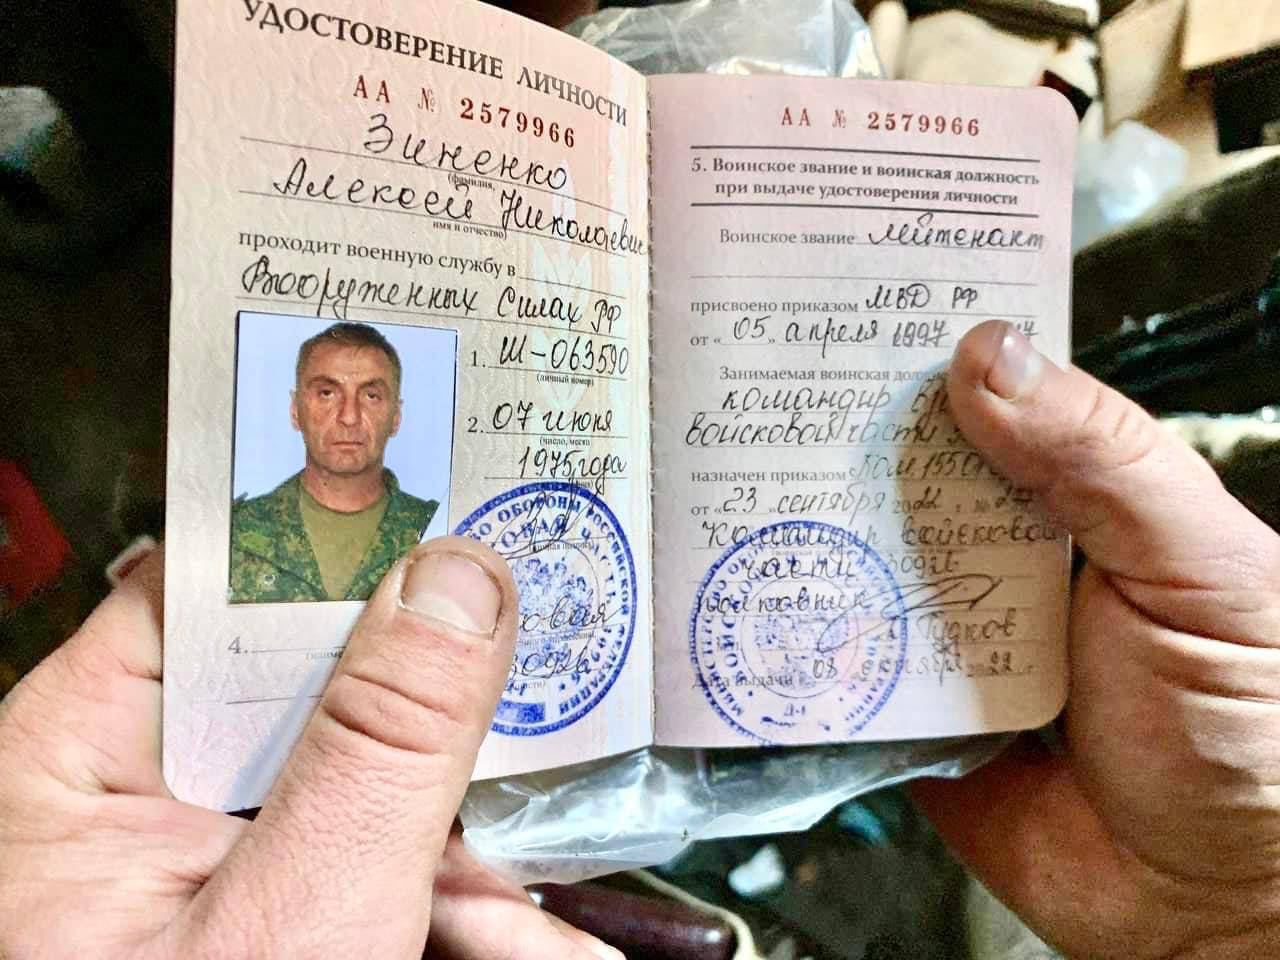 УДОСТОВЕРЕНИЕ ЛИЧНОСТИ
АА № 2579966
Зиненко
(фамилия,
Алексей Николаевич
имя и отчество)
проходит военную службу в
Вооруженных Силах РФ
1. Ш-063590
(личный номер)
2. 07 июня
(число, месяц
1975 года
4.
АА № 2579966
5. Воинское звание и воинская должность
при выдаче удостоверения личности
Воинское звание лейтенант
присвоено приказом МВД РФ
от « 05 » апреля 1997
Занимаемая воинская
командир
войсковой части
назначен приказом
от « 23 » сентября 2022 г. №
Командир войсковой
части 30926
полковник
Гудков
Дата выдачи « 08 октября 2022 г.